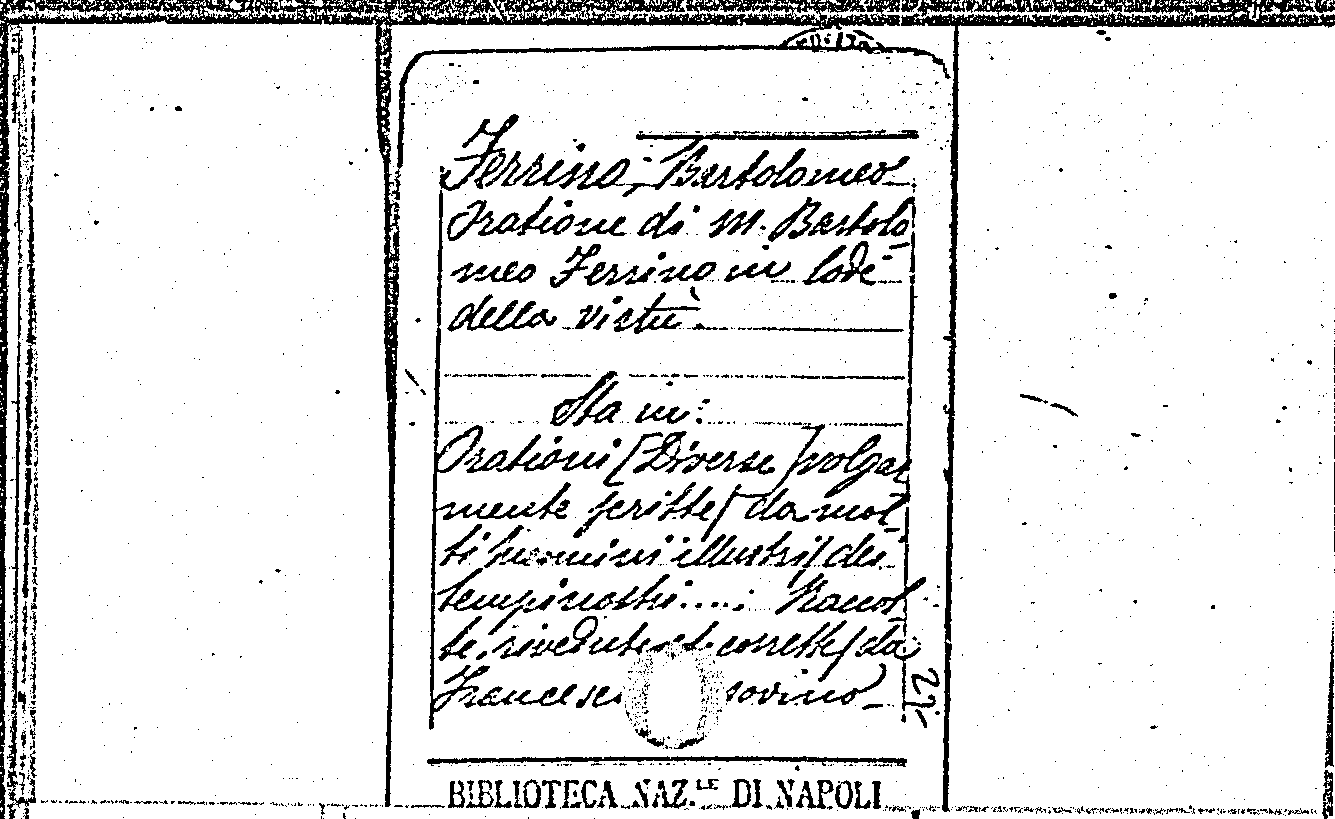 Ferrino, Bartolomeo
Oratione di M. Bartolo
meo Ferrino in lode
della virtù.
Sta in:
Orationi [Diverse] volgar
mente scritte/ da mol
ti huomini illustri/ dei
tempi nostri....: Raccol
te, rivedute et corrette/ da
Francesc sovino
BIBLIOTECA NAZ.LE DI NAPOLI